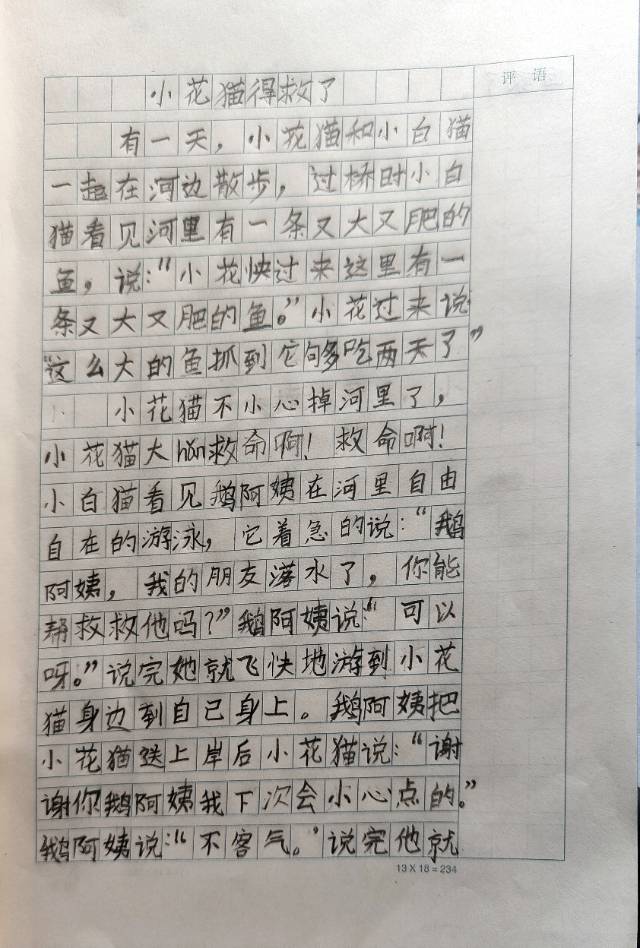 评语
小花猫得救了
有一天，小花猫和小白猫
一起在河边散步，过桥时小白
猫看见河里有一条又大又肥的
鱼，说：“小花快过来这里有一
条又大又肥的鱼。”小花过来说
“这么大的鱼抓到它够吃两天了”
小花猫不小心掉河里了，
小花猫大hǎn救命啊！救命啊！
小白猫看见鹅阿姨在河里自由
自在的游泳，它着急的说：“鹅
阿姨，我的朋友落水了，你能
帮救救他吗？”鹅阿姨说：“可以
呀。”说完她就飞快地游到小花
猫身边到自已身上。鹅阿姨把
小花猫送上岸后小花猫说：“谢
谢你鹅阿姨我下次会小心点的。”
鹅阿姨说：“不客气。”说完他就
13 X 18 = 234